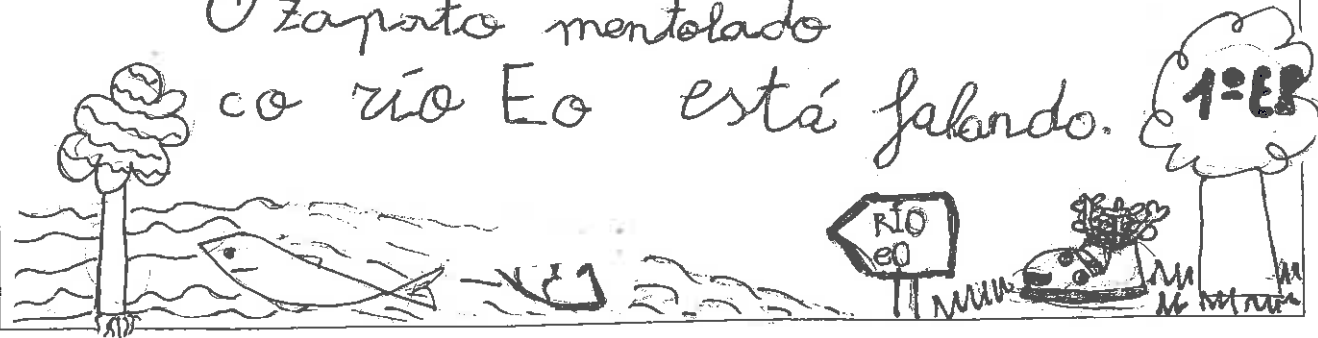 O zapato mentolado
co río Eo está falando.
1º EP
RÍO
eO